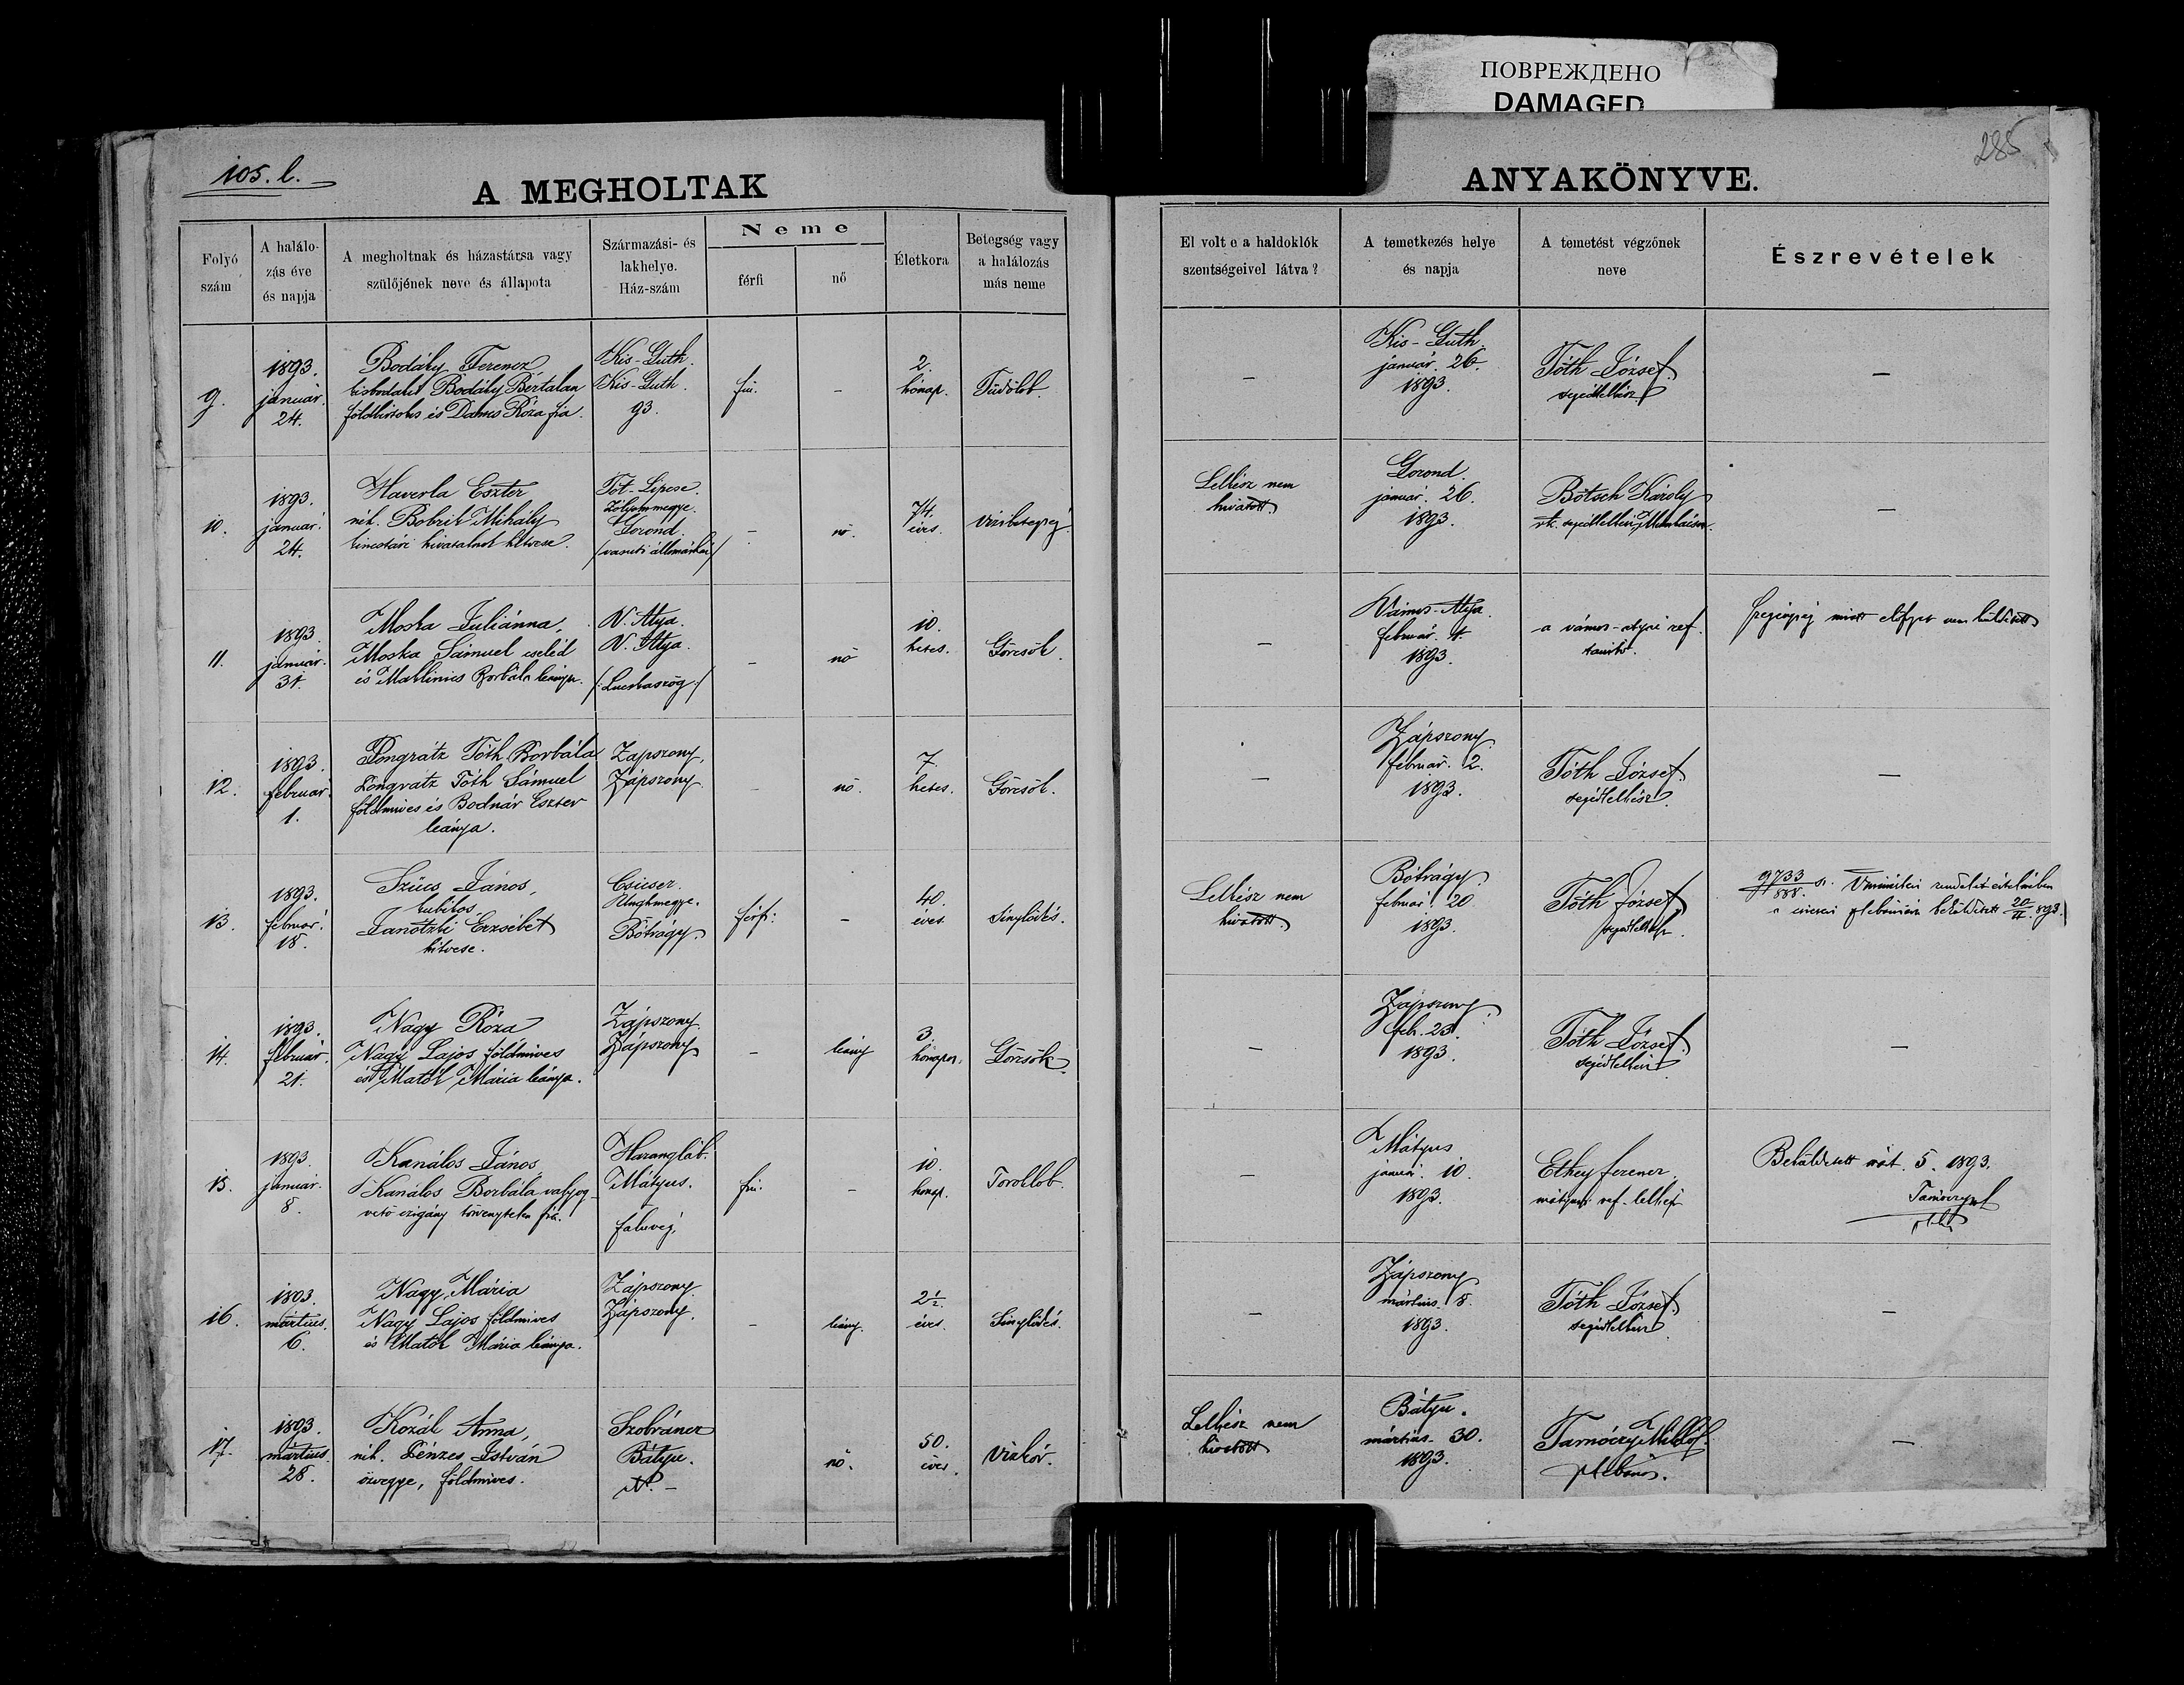 ПОВРЕЖДЕНО
DAMAGED
285
105. l.
A MEGHOLTAK
ANYAKÖNYVE.
Folyó szám
A halálozás éve és napja
A megholtnak és házastársa vagy szülőjének neve és állapota
Származási- és lakhelye. Ház-szám
Neme
férfi
nő
Életkora
Betegség vagy a halálozás más neme
El volt e a haldoklók szentségeivel látva?
A temetkezés helye és napja
A temetést végzőnek neve
Észrevételek
9.
1893.
január.
24.
Bodály Ferencz
Bodály Bertalan
földbirtokos és Dames Róza fia.
Kis-Guth.
Kis-Guth.
93.
fiú.
–
2.
hónap.
Tüdőlob.
–
Kis-Guth.
január. 26.
1893.
Tóth József
segédlelkész
–
10.
1893.
január.
24.
Haverla Eszter
néh. Bobrik Mihály
kincstári hivatalnok hitvese.
Tót-Lipcse.
Zólyommegye.
Gorond.
(vasuti állomáshoz)
–
nő.
74.
éves.
Vizibetegség.
Lelkész nem
hivatott.
Gorond.
január. 26.
1893.
Bötsch Károly
rk. segédlelkész, Munkácson.
–
11.
1893.
január.
31.
Moska Juliánna,
Moska Sámuel cseléd
és Mallinics Borbála leánya.
V. Atya.
V. Atya.
(Lucskaszög.)
–
nő
10.
hetes.
Görcsök.
–
Vámos-Atya.
február. 1.
1893.
a vámos-atyai ref.
tanító.
szegénység miatt előfizet nem küldetett
12.
1893.
február.
1.
Pongrátz Tóth Borbála
Pongratz Tóth Sámuel
földmives és Bodnár Eszter
leánya.
Zapszony,
Zápszony
–
nő.
7
hetes.
Görcsök.
–
Zápszony
február. 2.
1893.
Tóth József
segédlelkész.
–
13.
1893.
február.
18.
Szücs János,
kubikos
Janótzki Erzsébet
hitvese.
Csicser.
Unghmegye.
Bótrágy.
férfi:
–
40.
éves
Sinylődés.
Lelkész nem
hivatott.
Bótrágy
február. 20
1893.
Tóth József
segédlelkész.
9733
888.
rendelet értelmében
a csicseri plebániára beküldetett 20/II. 893.
14.
1893.
február.
21.
Nagy Róza
Nagy Lajos földmives
és Matól Mária leánya.
Zápszony.
Zápszony
–
leány
3
hónapos.
Görcsök.
–
Zápszony
feb. 23.
1893.
Tóth József
segédlelkész
–
15.
1893.
január.
8.
Kanálos János
Kanálos Borbála vályog-
vető czigány törvénytelen fia.
Harangláb.
Mátyus.
faluvég,
fiú.
–
10.
hónap.
Toroklob.
–
Mátyus
január. 10
1893.
Ethey ferencz
mátyusi ref. lelkész
Beküldetett márt. 5. 1893.
Tarnóczy
pleb
16.
1893.
martius.
6.
Nagy Mária
Nagy Lajos földmives
és Matól Mária leánya.
Zápszony.
Zápszony.
–
leány.
2½
éves.
Sinylődés.
–
Zápszony
mártius. 8.
1893.
Tóth József
segédlelkész
–
17.
1893.
martius.
28.
Kozál Anna,
néh. Pénzes István
özvegye, földmives.
Szobráncz
Bátyu.
№ –
nő.
50.
éves.
Vizkór.
Lelkész nem
hivatott
Bátyu.
mártius. 30.
1893.
Tarnóczy Miklós
plebános.
–